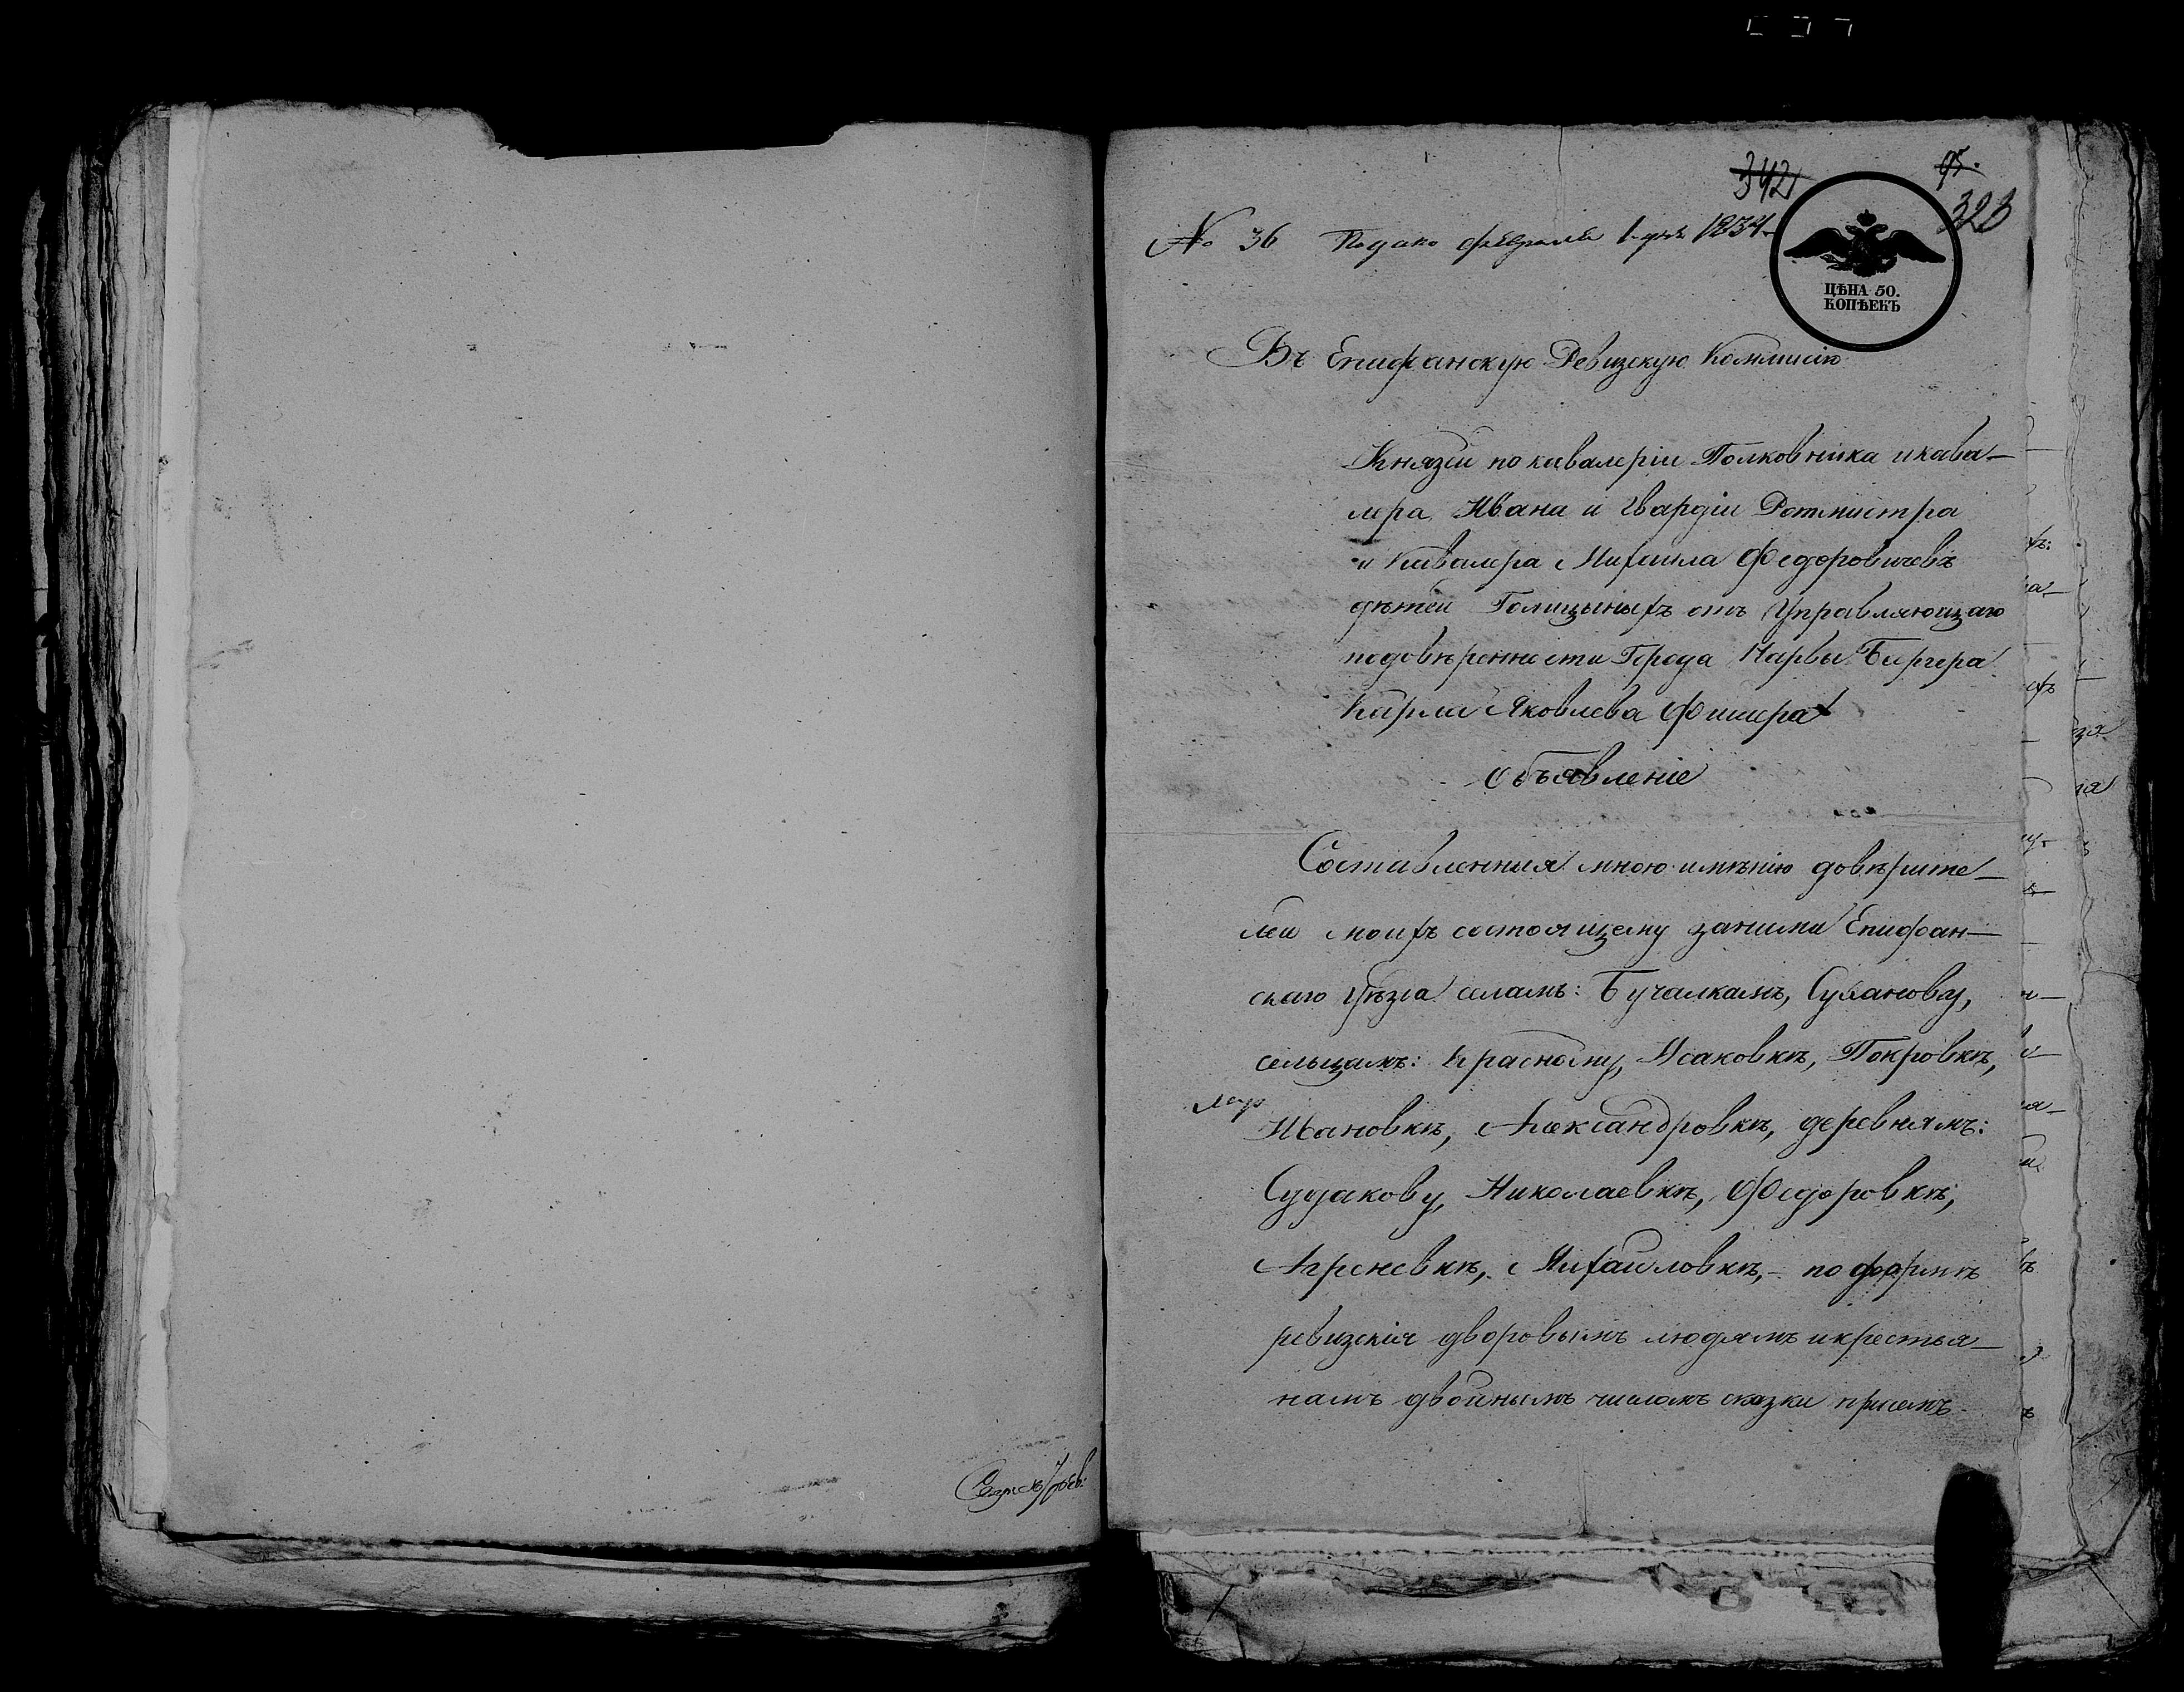 342 95.
323
№ 36 Подано февраля 1 дня 1834.
ЦѢНА 50.
КОПѢЕКЪ
Въ Епифанскую Ревизскую Коммисію
Князей по кавалеріи Полковника и кава-
лера Ивана и Гвардіи Ротмистра
и Кавалера Михаила Федоровичевъ
дѣтей Голицыныхъ отъ Управляющаго
по довѣренности Города Нарвы Биргера
Карла Яковлева Фишера
Объявленіе
Составленныя мною имѣнію довѣрите-
лей моихъ состоящему заними Епифан-
скаго уѣзда селамъ: Бучалкамъ, Суханову,
сельцамъ: Красному, Исаковкѣ, Покровкѣ,
Ивановкѣ, Александровкѣ, деревнямъ:
Судакову, Николаевкѣ, Федоровкѣ,
Михайловкѣ,- по формѣ
ревизскія дворовымъ людямъ и крестья-
намъ двойнымъ числомъ сказки присемъ